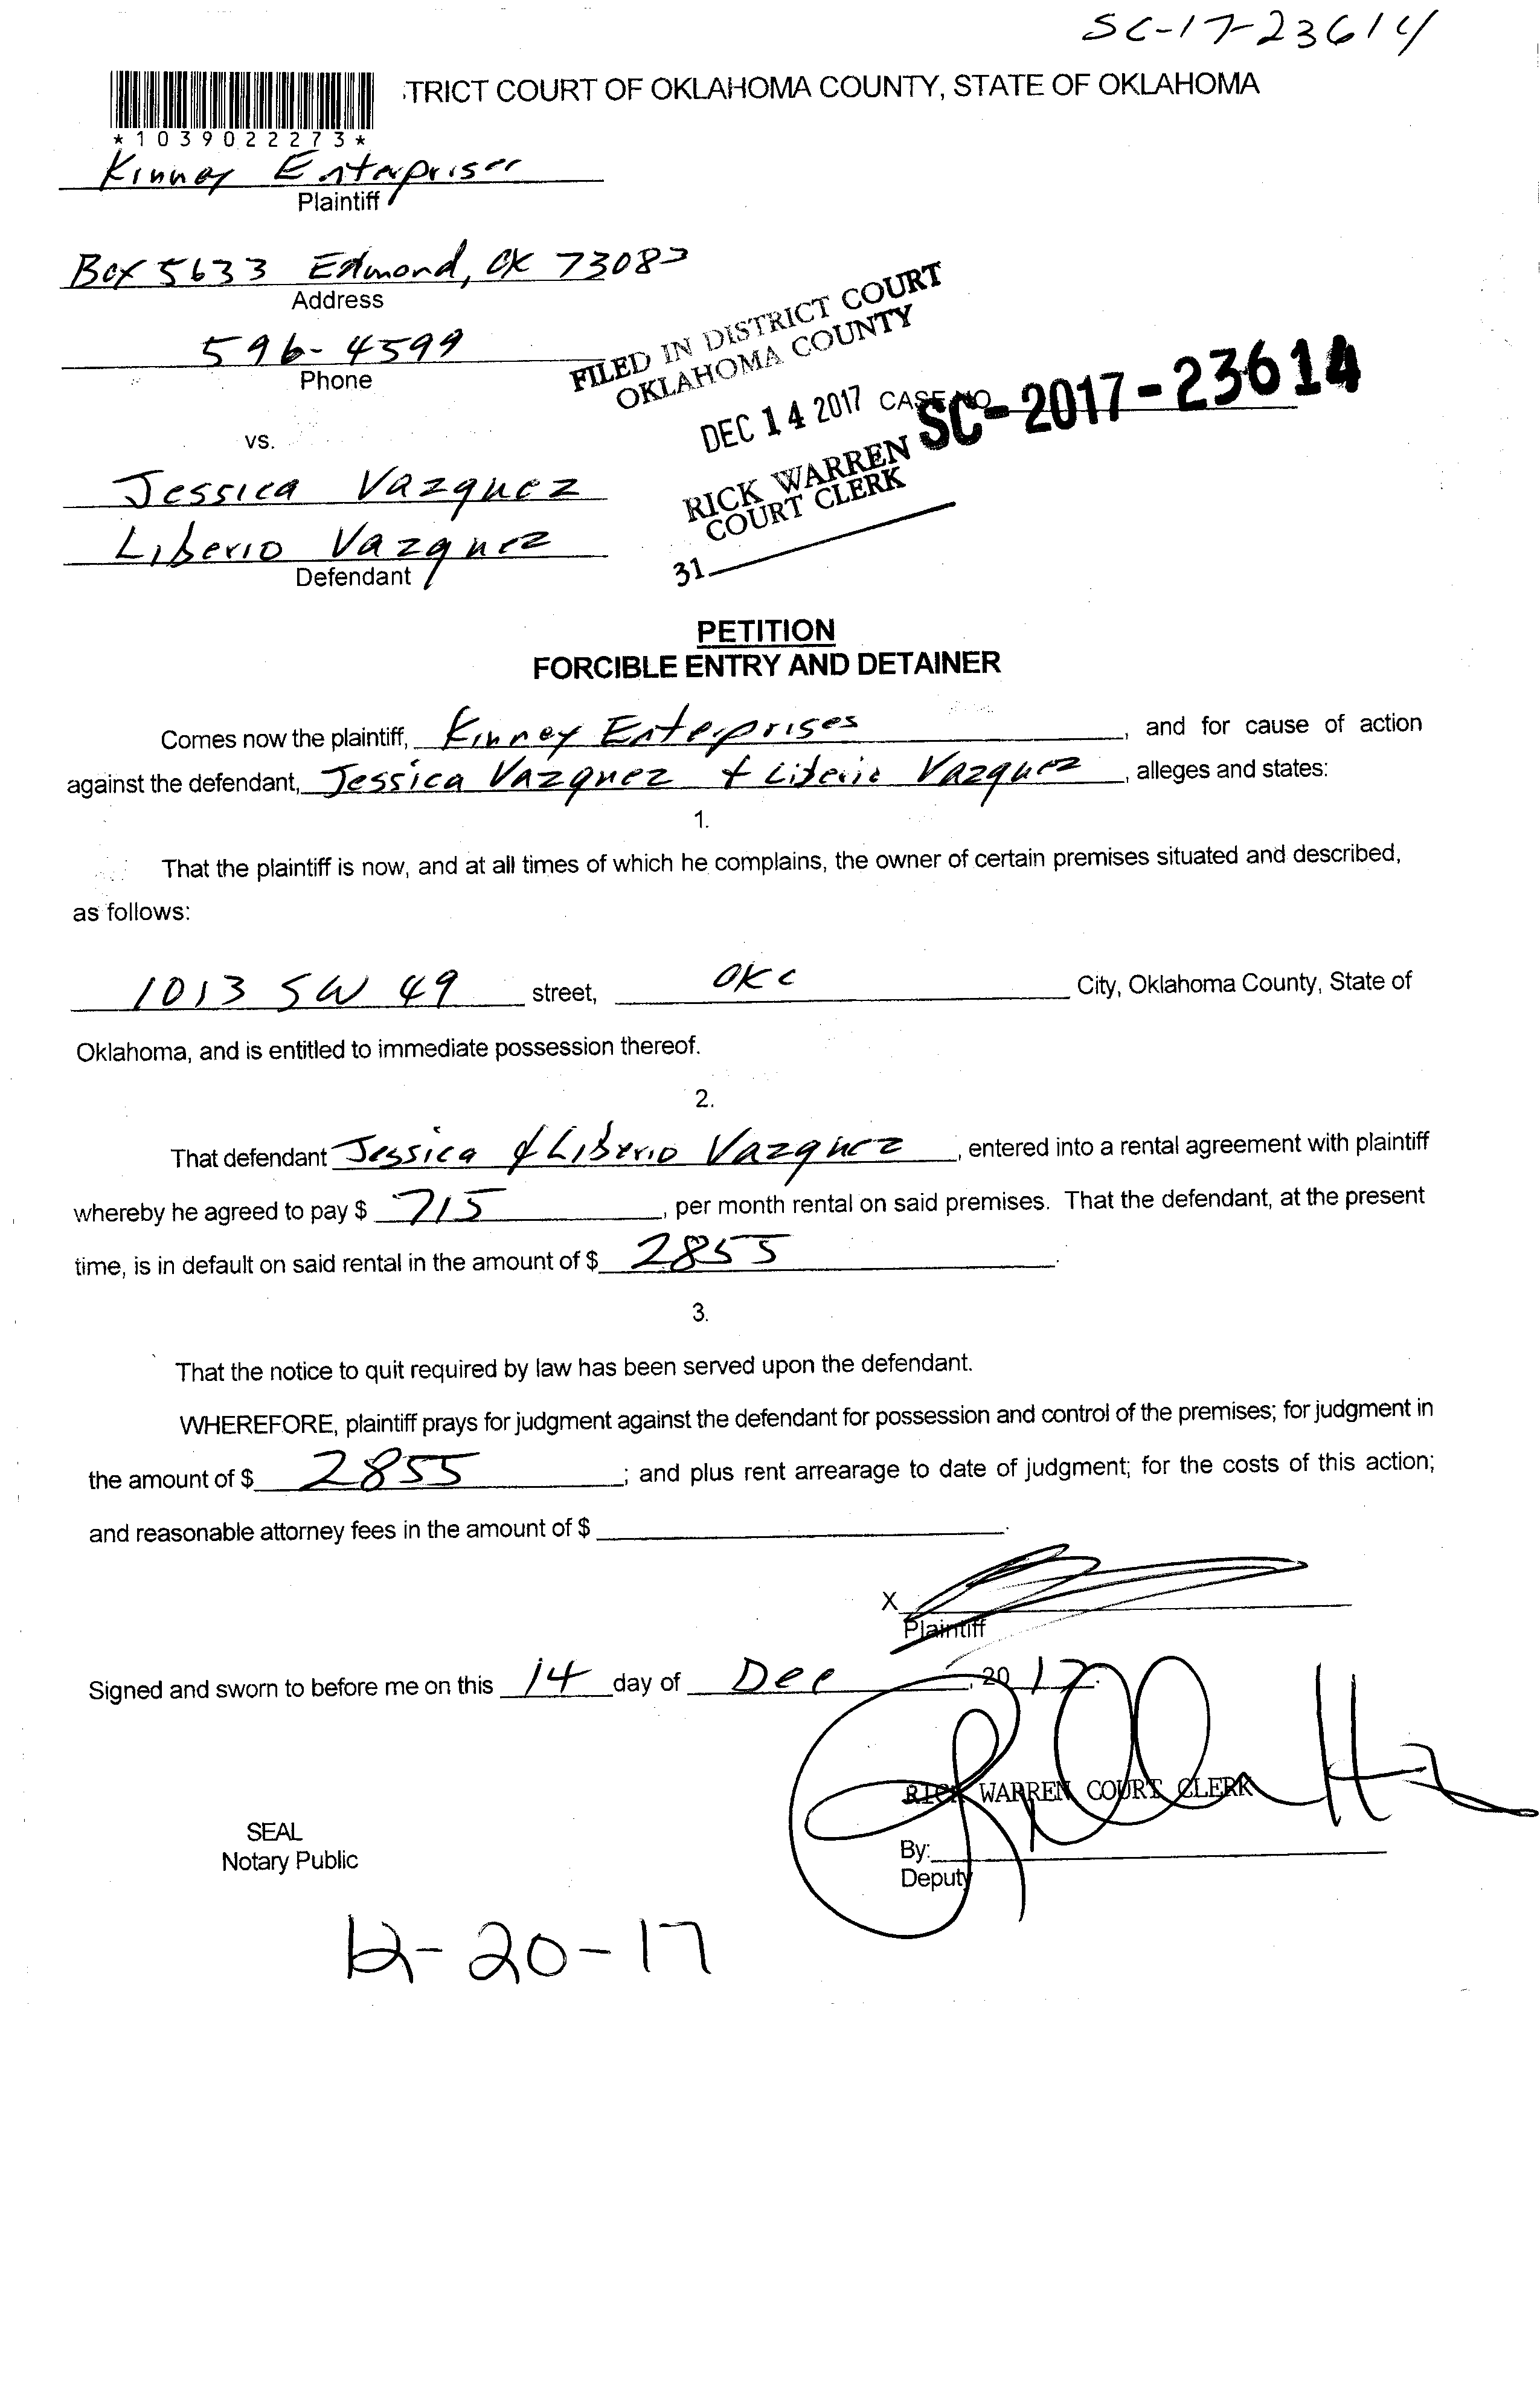 SC-17-23614
TRICT COURT OF OKLAHOMA COUNTY, STATE OF OKLAHOMA
*1039022273*
Kinney Enterprises
Plaintiff
Box 5633 Edmond, OK 73083
Address
596-4599
Phone
FILED IN DISTRICT COURT
OKLAHOMA COUNTY
DEC 14 2017
CASE NO. SC-2017-23614
RICK WARREN
COURT CLERK
31
vs.
Jessica Vazquez
Liberio Vazquez
Defendant
PETITION
FORCIBLE ENTRY AND DETAINER
Comes now the plaintiff, Kinney Enterprises, and for cause of action
against the defendant, Jessica Vazquez + Liberio Vazquez, alleges and states:
1.
That the plaintiff is now, and at all times of which he complains, the owner of certain premises situated and described,
as follows:
1013 SW 49 street, OKC City, Oklahoma County, State of
Oklahoma, and is entitled to immediate possession thereof.
2.
That defendant Jessica & Liberio Vazquez, entered into a rental agreement with plaintiff
whereby he agreed to pay $ 715, per month rental on said premises. That the defendant, at the present
time, is in default on said rental in the amount of $ 2855.
3.
That the notice to quit required by law has been served upon the defendant.
WHEREFORE, plaintiff prays for judgment against the defendant for possession and control of the premises; for judgment in
the amount of $ 2855; and plus rent arrearage to date of judgment; for the costs of this action;
and reasonable attorney fees in the amount of $ .
X
Plaintiff
Signed and sworn to before me on this 14 day of Dec, 2017.
RICK WARREN COURT CLERK
SEAL
Notary Public
By:
Deputy
12-20-17